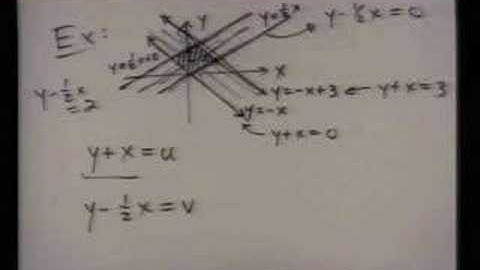 Ex:
y
y=½x
y-½x=0
y=½x+2
y-½x=2
x
y=-x+3 ← y+x=3
y=-x
y+x=0
y+x=u
y-½x=v